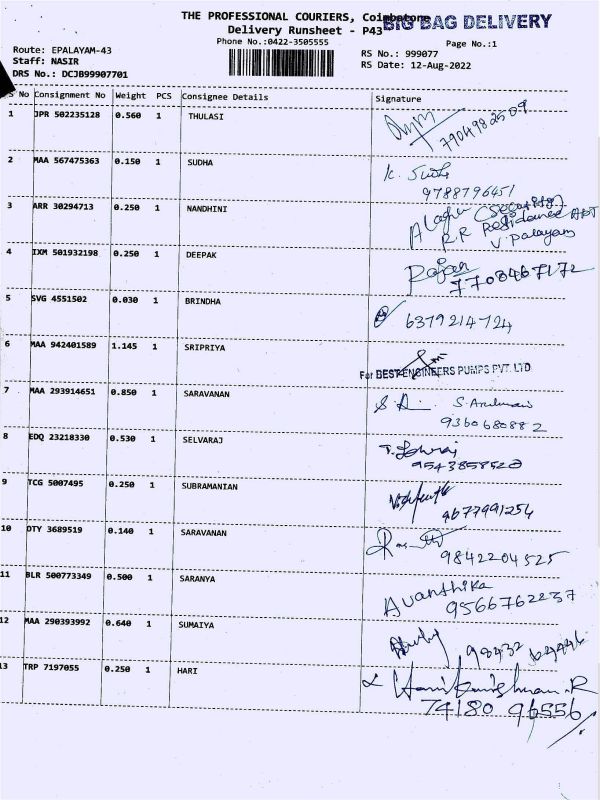 THE PROFESSIONAL COURIERS, Coimbatore
BIG BAG DELIVERY
Delivery Runsheet - P43
Phone No.:0422-3505555
Page No.:1
Route: EPALAYAM-43
RS No.: 999077
Staff: NASIR
RS Date: 12-Aug-2022
DRS No.: DCJB99907701
S No Consignment No Weight PCS Consignee Details Signature
1 JPR 502235128 0.560 1 THULASI
7904982509
2 MAA 567475363 0.150 1 SUDHA K. Sudh
9788796451
3 ARR 30294713 0.250 1 NANDHINI (Security)
R.R Residance APT
V Palayam
4 IXM 501932198 0.250 1 DEEPAK Rajan
7708467172
5 SVG 4551502 0.030 1 BRINDHA 6379214724
6 MAA 942401589 1.145 1 SRIPRIYA
For BEST ENGINEERS PUMPS PVT. LTD
7 MAA 293914651 0.850 1 SARAVANAN
9360680882
8 EDQ 23218330 0.530 1 SELVARAJ
9543858520
9 TCG 5007495 0.250 1 SUBRAMANIAN
9677991254
10 DTY 3689519 0.140 1 SARAVANAN
9842204525
11 BLR 500773349 0.500 1 SARANYA Avanthika
9566762237
12 MAA 290393992 0.640 1 SUMAIYA
98432
13 TRP 7197055 0.250 1 HARI Harikrishnan.R
74180 96556